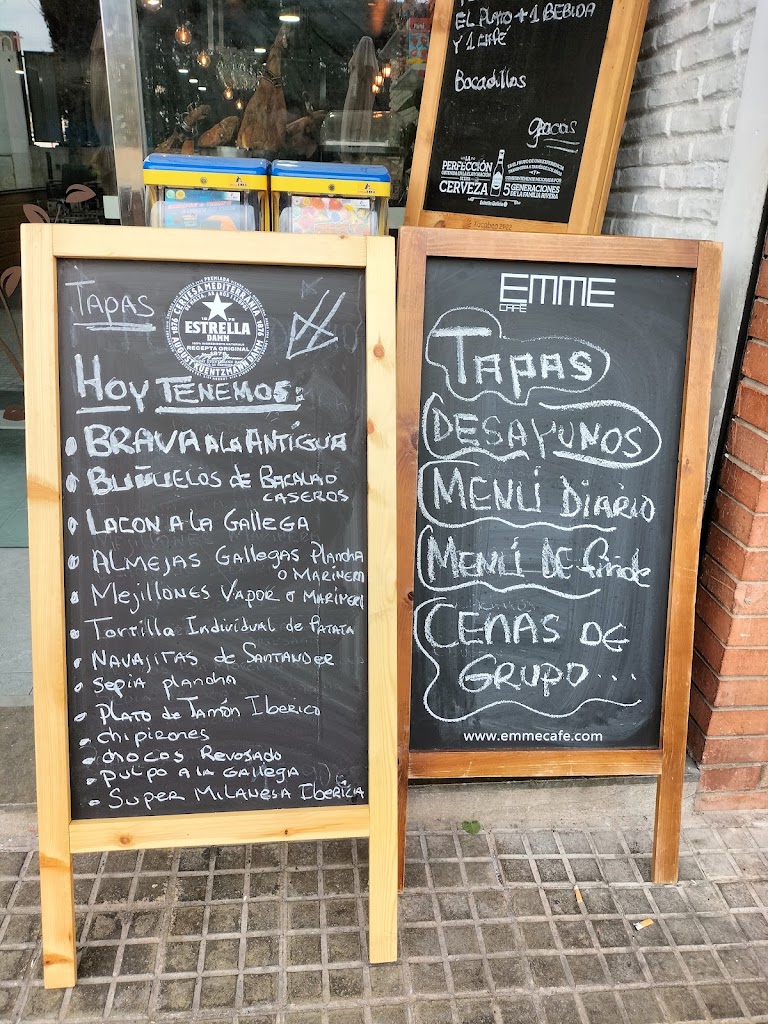 EL PLATO + 1 BEBIDA
Y 1 CAFÉ
Bocadillos
gracias
LA
PERFECCIÓN
CERVEZA
5 GENERACIONES
DE LA FAMILIA RIVERA
Estrella Galicia
TAPAS
PREMIADA
CERVESA MEDITERRÀNIA
1876
ESTRELLA
DAMM
1876
RECEPTA ORIGINAL
1876
AUGUST KUENTZMANN DAMM
HOY TENEMOS:
• BRAVA A LA ANTIGUA
• BUÑUELOS de BACALAO
CASEROS
• LACON A LA GALLEGA
• ALMEJAS GALLEGAS PLANCHA
O MARINERA
• MEJILLONES VAPOR O MARINERA
• TORTILLA INDIVIDUAL de PATATA
• NAVAJITAS de SANTANDER
• SEPIA plancha
• PLATO de JAMÓN IBERICO
• CHIPIRONES
• CHOCOS REVOSADO
• PULPO A LA GALLEGA
• SUPER MILANESA IBERICA
EMME
CAFÉ
TAPAS
DESAYUNOS
MENÚ DIARIO
MENÚ DE finde
CENAS DE
GRUPO...
www.emmecafe.com